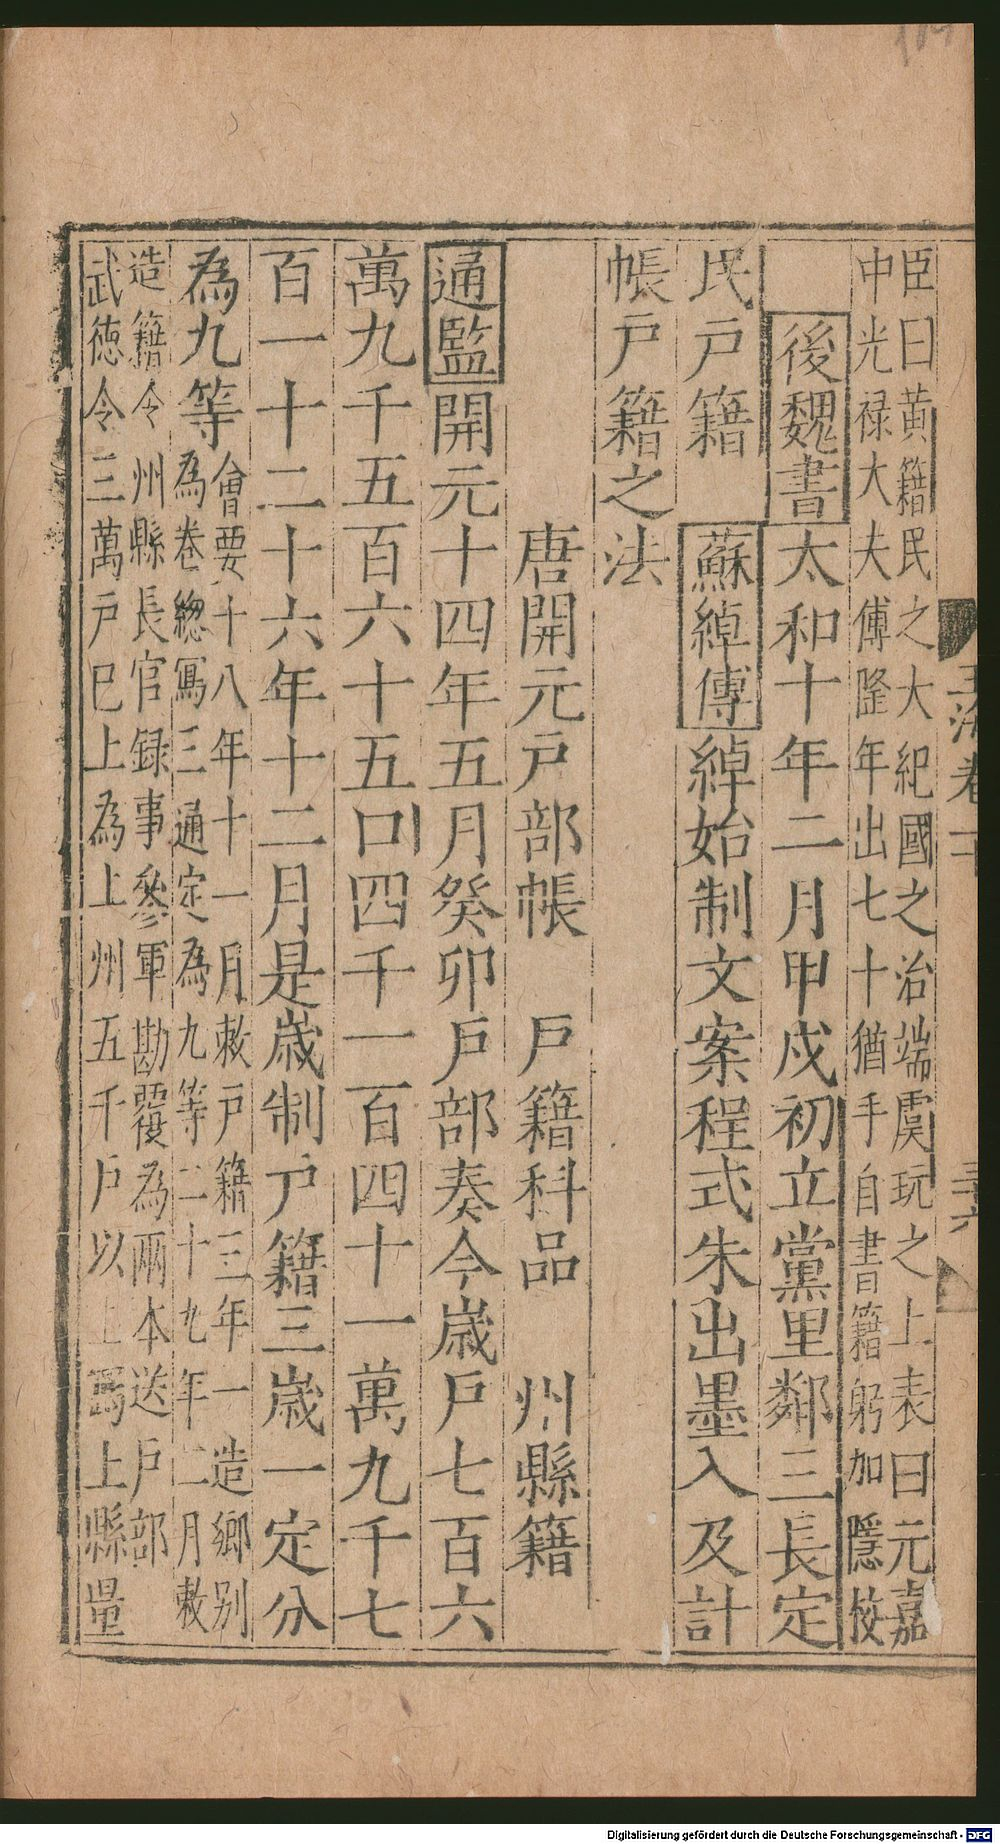 臣曰黄籍民之大紀國之治端虞玩之上表曰元嘉
中光禄大夫傅隆年出七十猶手自書籍躬加隱校
後魏書太和十年二月甲戌初立黨里鄰三長定
民戸籍 蘇綽傳綽始制文案程式朱出墨入及計
帳戸籍之法
唐開元戸部帳 戸籍科品 州縣籍
通監開元十四年五月癸卯戸部奏今歲戸七百六
萬九千五百六十五口四千一百四十一萬九千七
百一十二十六年十二月是歲制戸籍三歲一定分
為九等會要十八年十一月敕戸籍三年一造鄉别
為卷總寫三通定為九等二十九年二月敕
造籍令州縣長官録事參軍勘覆為兩本送戸部
武徳令三萬戸已上為上州五千戸以上為上縣量
玉海卷二十
三十六
Digitalisierung gefördert durch die Deutsche Forschungsgemeinschaft - DFG